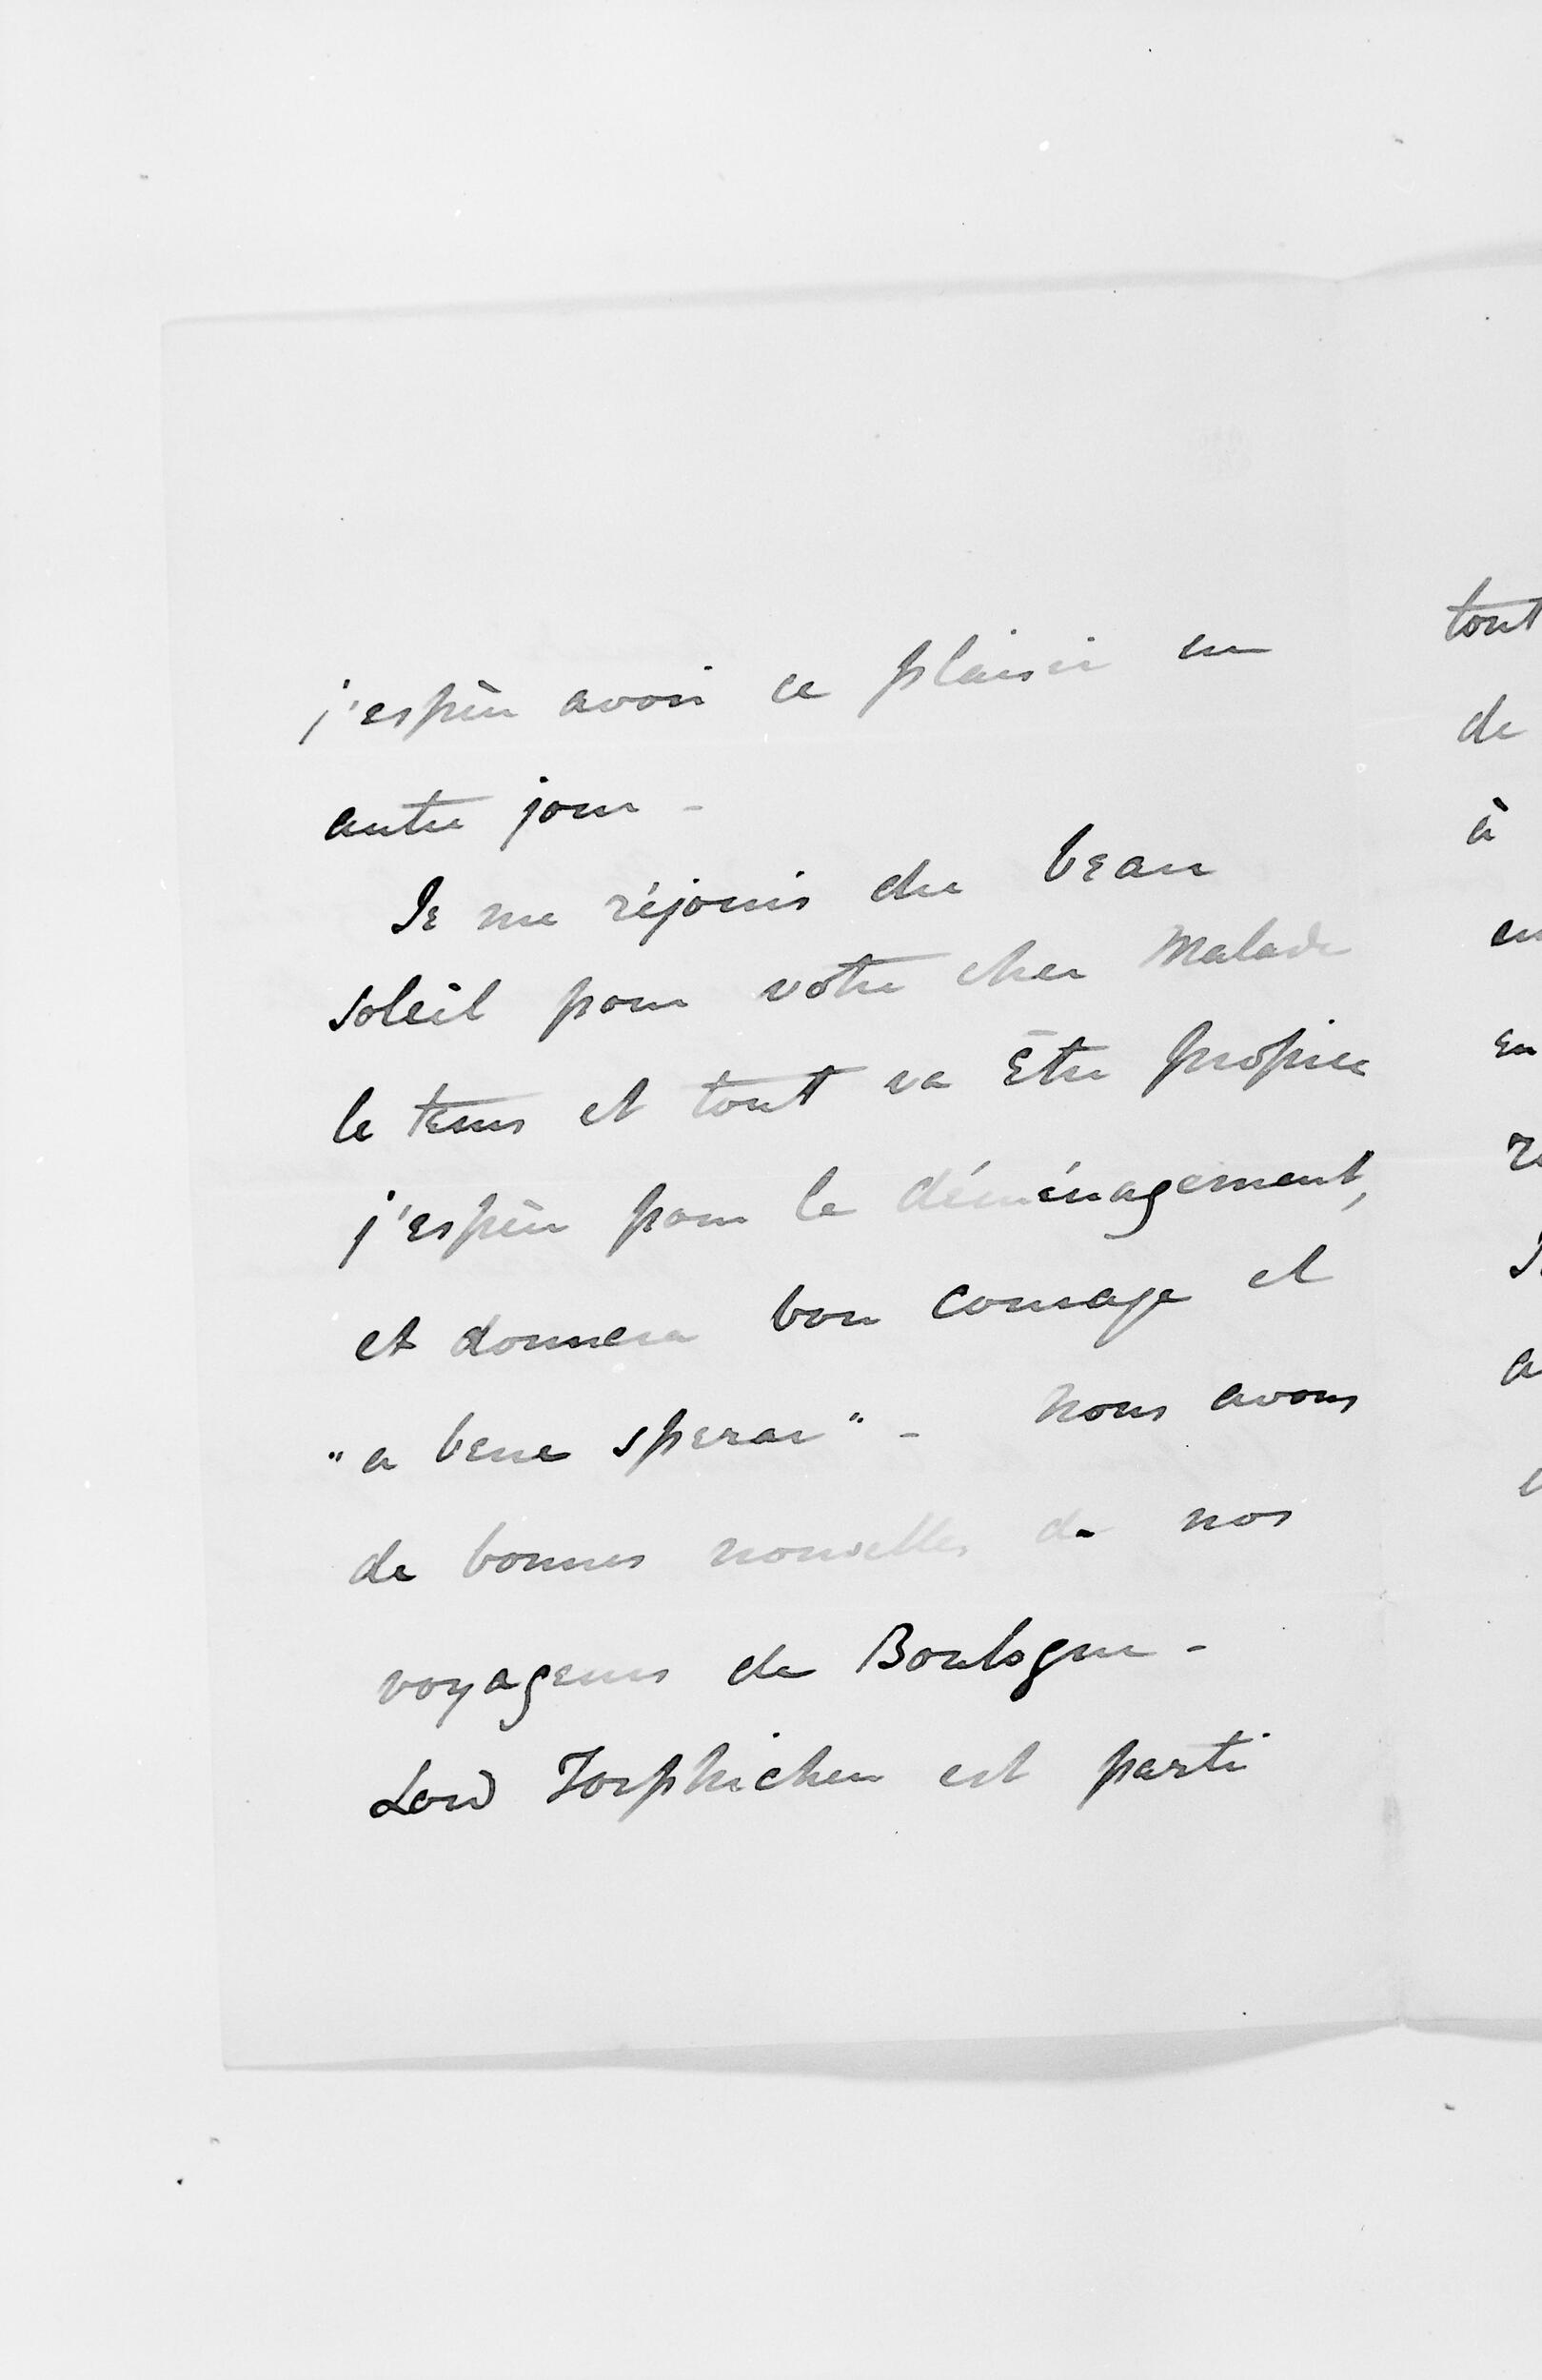 j'espère avoir ce plaisir un
autre jour -
Je me réjouis du beau
soleil pour votre cher Malade
le tems et tout va être propice
j'espère pour le déménagement,
et donnera bon courage et
"a bene sperar" - nous avons
de bonnes nouvelles de nos
voyageurs de Boulogne -
Lord Torphichen est parti
tout
de
à
en